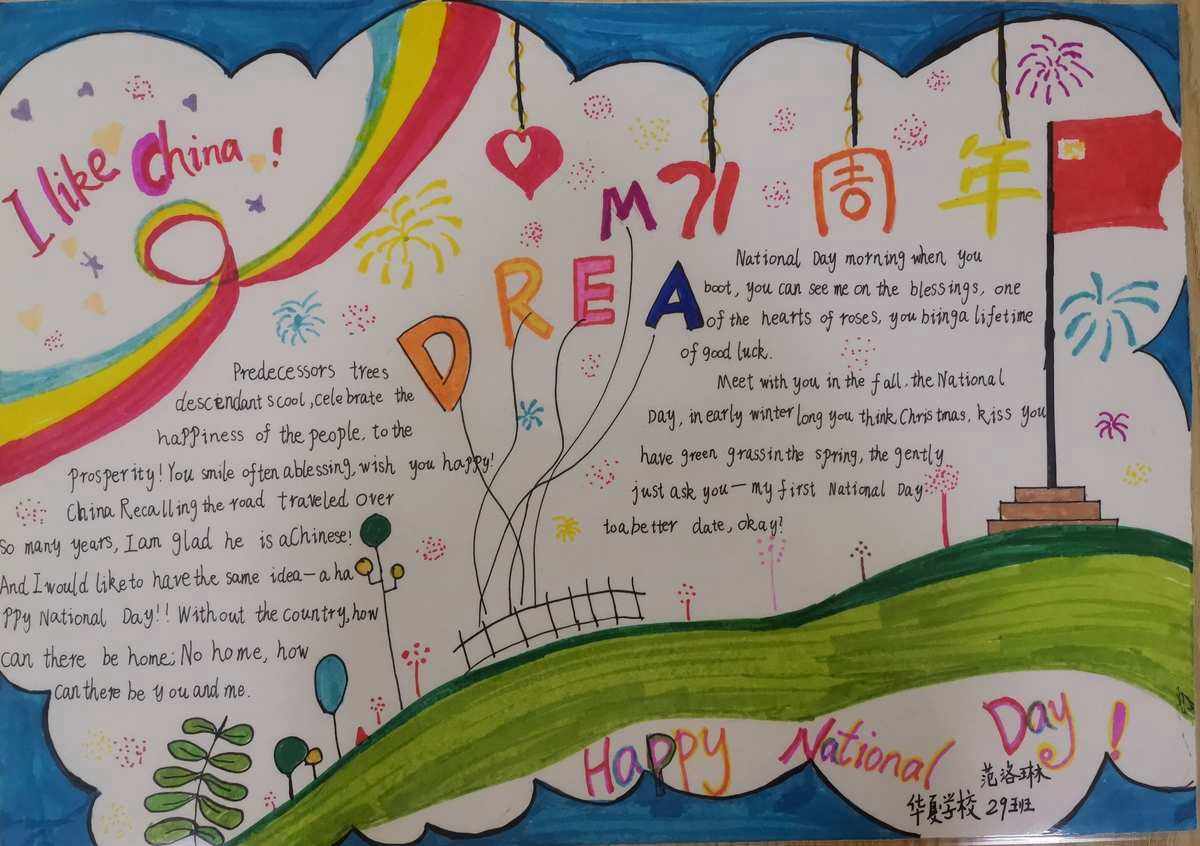 I like China!
M71周年
DREA
National Day morning when you
boot, you can see me on the blessings, one
of the hearts of roses, you biinga lifetime
of good luck.
Meet with you in the fall. the National
Day, in early winter long you think, Christmas, kiss you
have green grass in the spring, the gently
just ask you—my first National Day
toa better date, okay?
Predecessors trees
descendants cool, celebrate the
happiness of the people, to the
prosperity! You smile often ablessing, wish you happy!
China Recalling the road traveled over
so many years, I am glad he is aChinese!
And I would liketo have the same idea—a ha
ppy National Day!! Without the country, how
can there be home; No home, how
can there be you and me.
Happy National Day!
范洛琳
华夏学校 29班